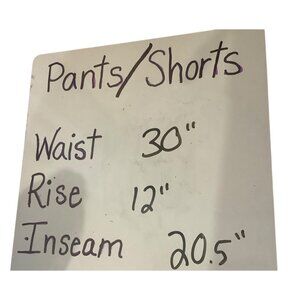 Pants/Shorts
Waist 30"
Rise 12"
Inseam 20.5"